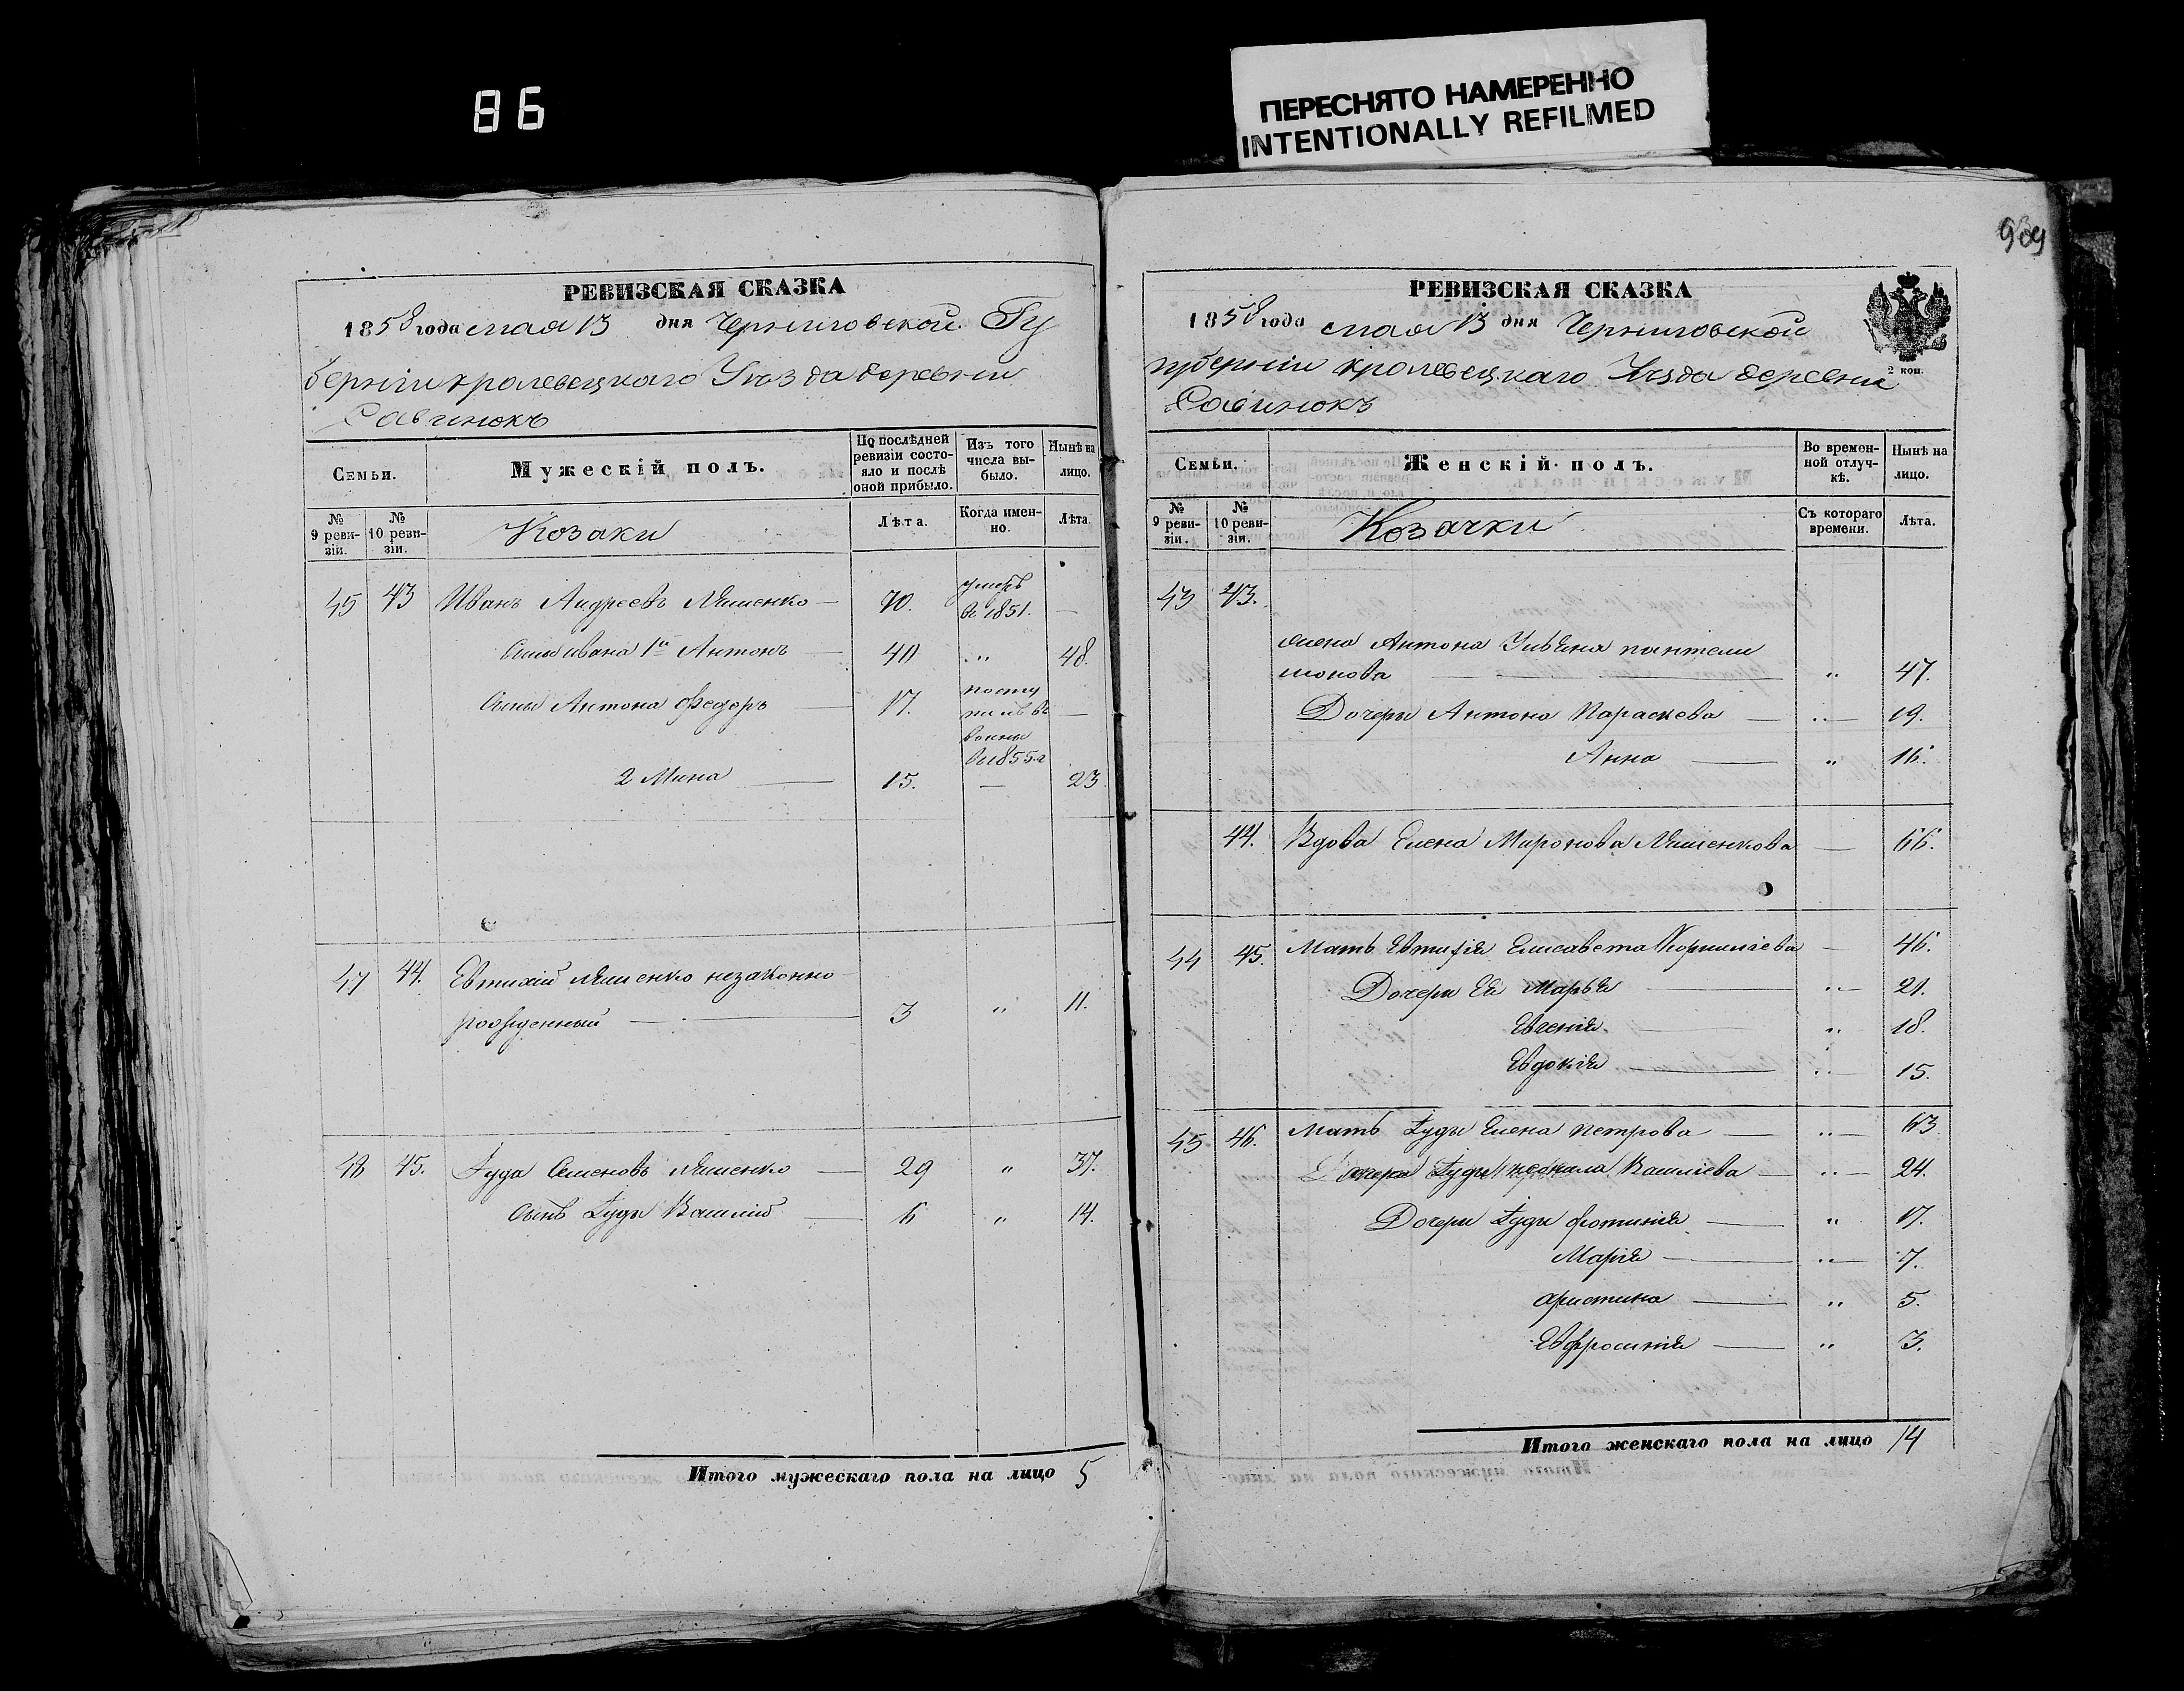 86
ПЕРЕСНЯТО НАМЕРЕННО
INTENTIONALLY REFILMED
РЕВИЗСКАЯ СКАЗКА
1858 года мая 13 дня Черниговской Гу
берніи кролевецкаго Уѣзда деревни
Савинокъ
Семьи. Мужескій полъ. По послѣдней ревизіи состояло и послѣ оной прибыло. Изъ того числа выбыло. Нынѣ на лицо.
№ 9 ревизіи. № 10 ревизіи. Козаки Лѣта. Когда именно. Лѣта.
45 43 Иванъ Андреевъ 70. умеръ въ 1851. —
Сынъ ивана 1й Антонъ — 40 " 48.
Сыны Антона Федоръ — 17. посту
пилъ въ —
воины
в 1855 г
2 Мина — 15. — 23
47 44. Евтихій незаконно
рожденный — 3 " 11.
48 45. Іуда Семеновъ — 29 " 37.
Сынъ Іуды Василій — 6 " 14.
Итого мужескаго пола на лицо 5
РЕВИЗСКАЯ СКАЗКА
1858 года мая 13 дня Черниговской
губерніи кролевецкаго Уѣзда деревни
2 коп.
Савинокъ
Семьи. Женскій полъ. Во временной отлучкѣ. Нынѣ на лицо.
№ 9 ревизіи. № 10 ревизіи. Козачки Съ котораго времени. Лѣта.
43 43.
жена Антона Ульяна пантели
монова — " 47.
Дочери Антона Параскева — " — 19.
Анна — " 16.
44. Вдова Елена Миронова — 66.
44 45. Мать Евтихія Елисавета Корниліева — 46.
Дочери Ея Марья — " — 21.
Евгенія — " 18.
Евдокія — " 15.
45 46. Мать Іуды Елена петрова — " — 63
Іуды Василіева — " — 24.
Дочери Іуды фотинія — " 17.
Марія — " — 7.
Христина — " 5.
Евфросинія — " 3.
Итого женскаго пола на лицо 14